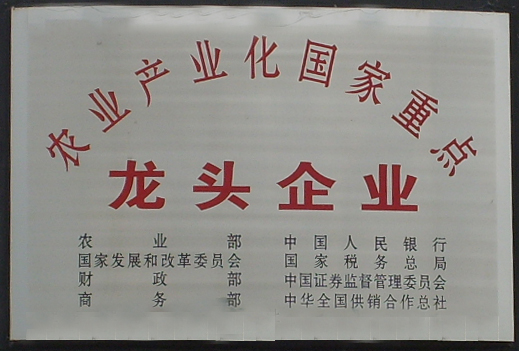 农业产业化国家重点
龙头企业
农业部 中国人民银行
国家发展和改革委员会 国家税务总局
财政部 中国证券监督管理委员会
商务部 中华全国供销合作总社